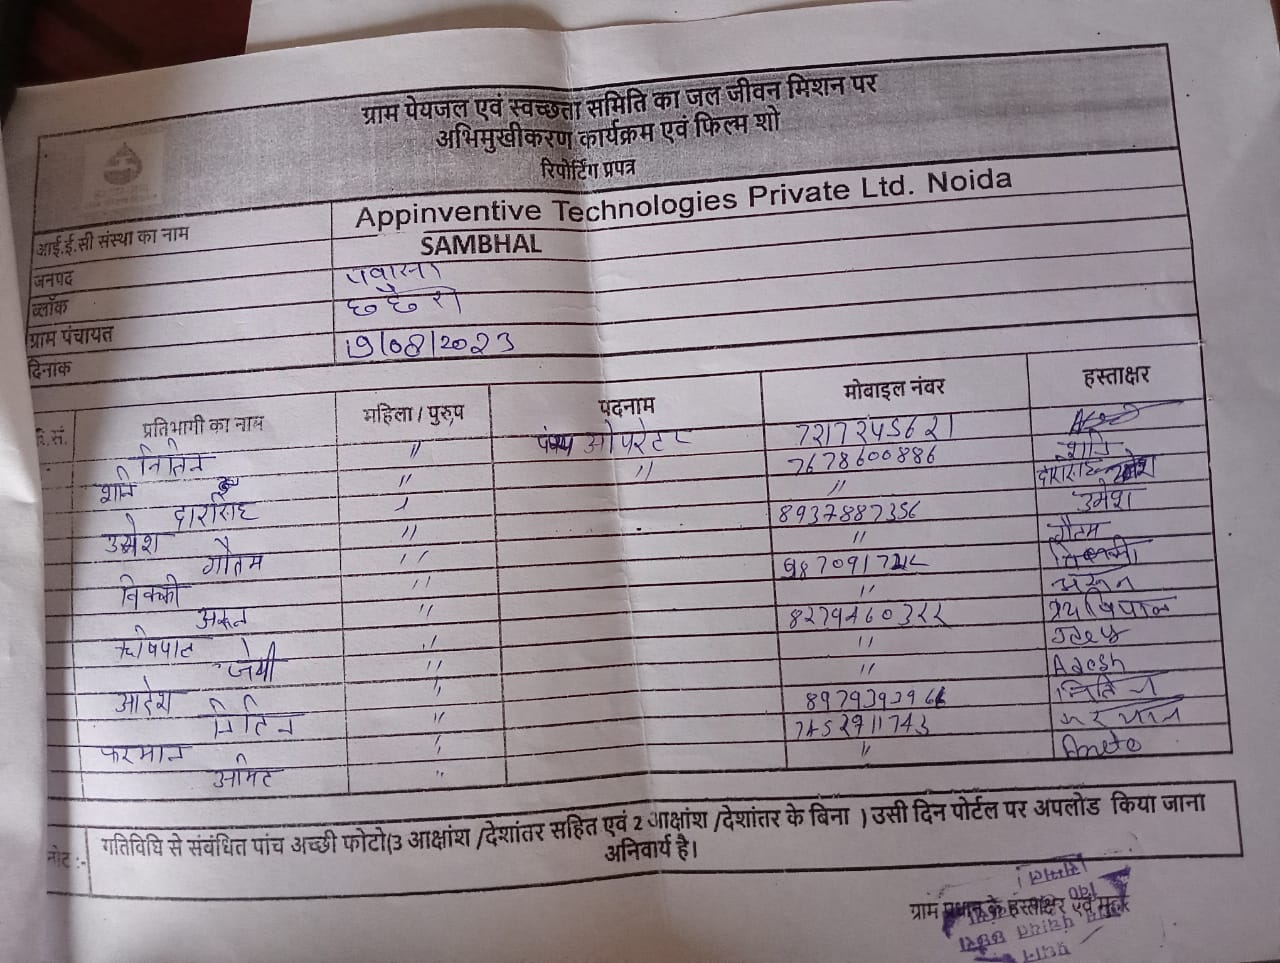 ग्राम पेयजल एवं स्वच्छता समिति का जल जीवन मिशन पर
अभिमुखीकरण कार्यक्रम एवं फिल्म शो
रिपोर्टिंग प्रपत्र
आई.ई.सी संस्था का नाम Appinventive Technologies Private Ltd. Noida
जनपद SAMBHAL
ब्लॉक पवासा
ग्राम पंचायत छछैरा
दिनाक 19/08/2023
सं. प्रतिभागी का नाम महिला / पुरुष पदनाम मोबाइल नंवर हस्ताक्षर
नितिन " पंम्प ओपरेटर 7217245621
शनि " " 7678600886 शनि
दारासिंह " दारासिंह
उमेश " 8937887356 उमेश
गौतम " " गौतम
विक्की " विक्की
अरून " " अरून
ऋषिपाल " 8279460322
जेमी " "
आदेश " " Adesh
नितिन " नितिन
फरमान " 7452911743
अमित "
नोट :- गतिविधि से संवंधित पांच अच्छी फोटो(3 आक्षांश /देशांतर सहित एवं 2 आक्षांश /देशांतर के बिना ) उसी दिन पोर्टल पर अपलोड किया जाना
अनिवार्य है।
ग्राम प्रधान के हस्ताक्षर एवं मुहर